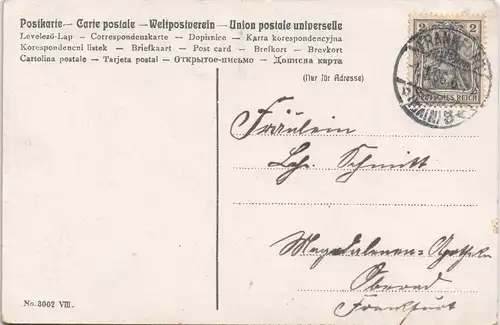 Postkarte — Carte postale — Weltpostverein — Union postale universelle
Levelező-Lap — Correspondenzkarte — Dopisnice — Karta korespondencyjna
Korespondencni listek — Briefkaart — Post card — Brefkort — Brevkort
Cartolina postale — Tarjeta postal — Открытое-письмо — Дописна карта
(Nur für Adresse)
2 2
DEUTSCHES REICH
Fräulein
Schmitt
Magdalenen-Apotheke
Oberrad
Frankfurt
No. 3602 VIII.